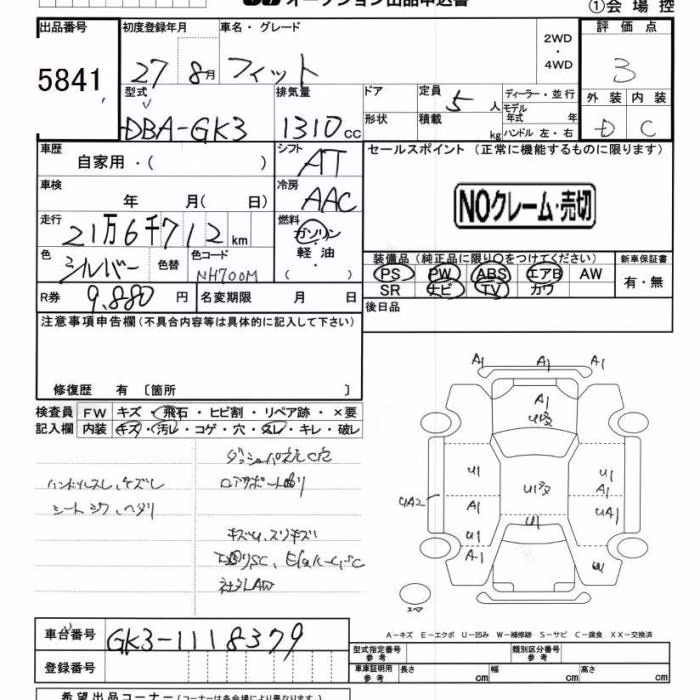 オークション出品申込書
①会場控
出品番号 初度登録年月 車名・グレード 評価点
5841 27 8月 フィット 2WD・4WD 3
型式 排気量 ドア 定員 5人 ディーラー・並行 外装 内装
DBA-GK3 1310cc 形状 積載 kg モデル年式 年 ハンドル 左・右 D C
車歴 シフト セールスポイント (正常に機能するものに限ります)
自家用・( ) AT
車検 年 月( 日) 冷房 AAC
NOクレーム・売切
走行 21万6千712km 燃料 ガソリン・軽油・( )
色 シルバー 色替 色コード NH700M
装備品(純正品に限り○をつけてください) 新車保証書
PS PW ABS エアB AW 有・無
SR ナビ TV カワ
R券 9,880円 名変期限 月 日
後日品
注意事項申告欄(不具合内容等は具体的に記入して下さい)
修復歴 有 〔箇所 〕
検査員 FW キズ・飛石・ヒビ割・リペア跡・×要
記入欄 内装 キズ・汚レ・コゲ・穴・スレ・キレ・破レ
ハンドルスレ、ケズレ
シート シワ、ヘタリ
A1 A1 A1
A1
U1 U1
A1
UA2 A1 UA1
U1 U1
A1
スペア
A－キズ E－エクボ U－凹み W－補修跡 S－サビ C－腐食 XX－交換済
車台番号 GK3-1118379
登録番号
型式指定番号 参考 類別区分番号 参考
車庫証明用 参考 長さ cm 幅 cm 高さ cm
希望出品コーナー(コーナーは各会場により異なります。)